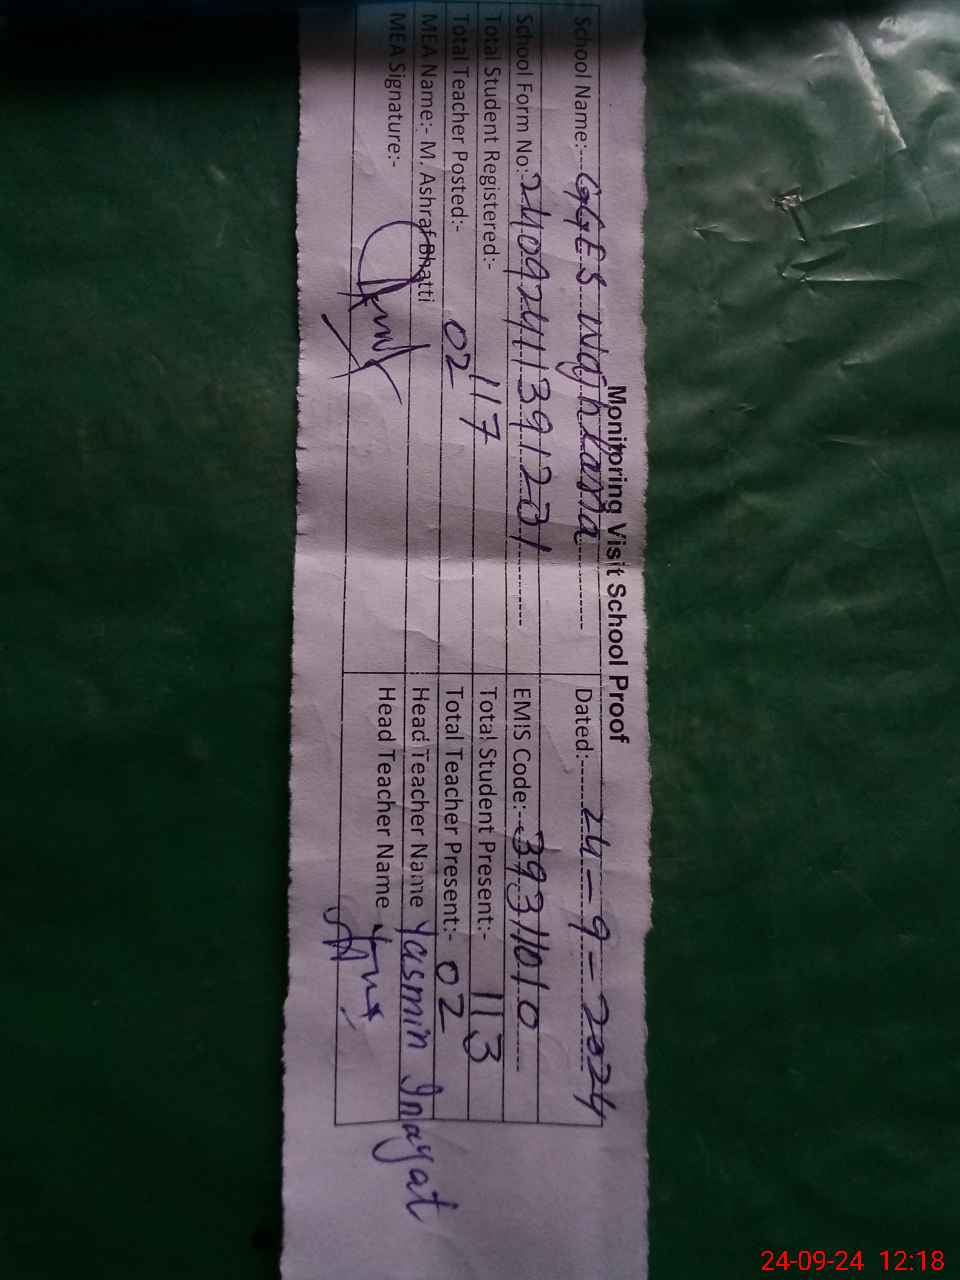 Monitoring Visit School Proof
School Name:- GGES Waghlana Dated:- 24-9-2024
School Form No:- 24092411391201 EMIS Code:- 39311010
Total Student Registered:- 117 Total Student Present:- 113
Total Teacher Posted:- 02 Total Teacher Present:- 02
MEA Name:- M. Ashraf Bhatti Head Teacher Name Yasmin Inayat
MEA Signature:- Head Teacher Name
24-09-24 12:18